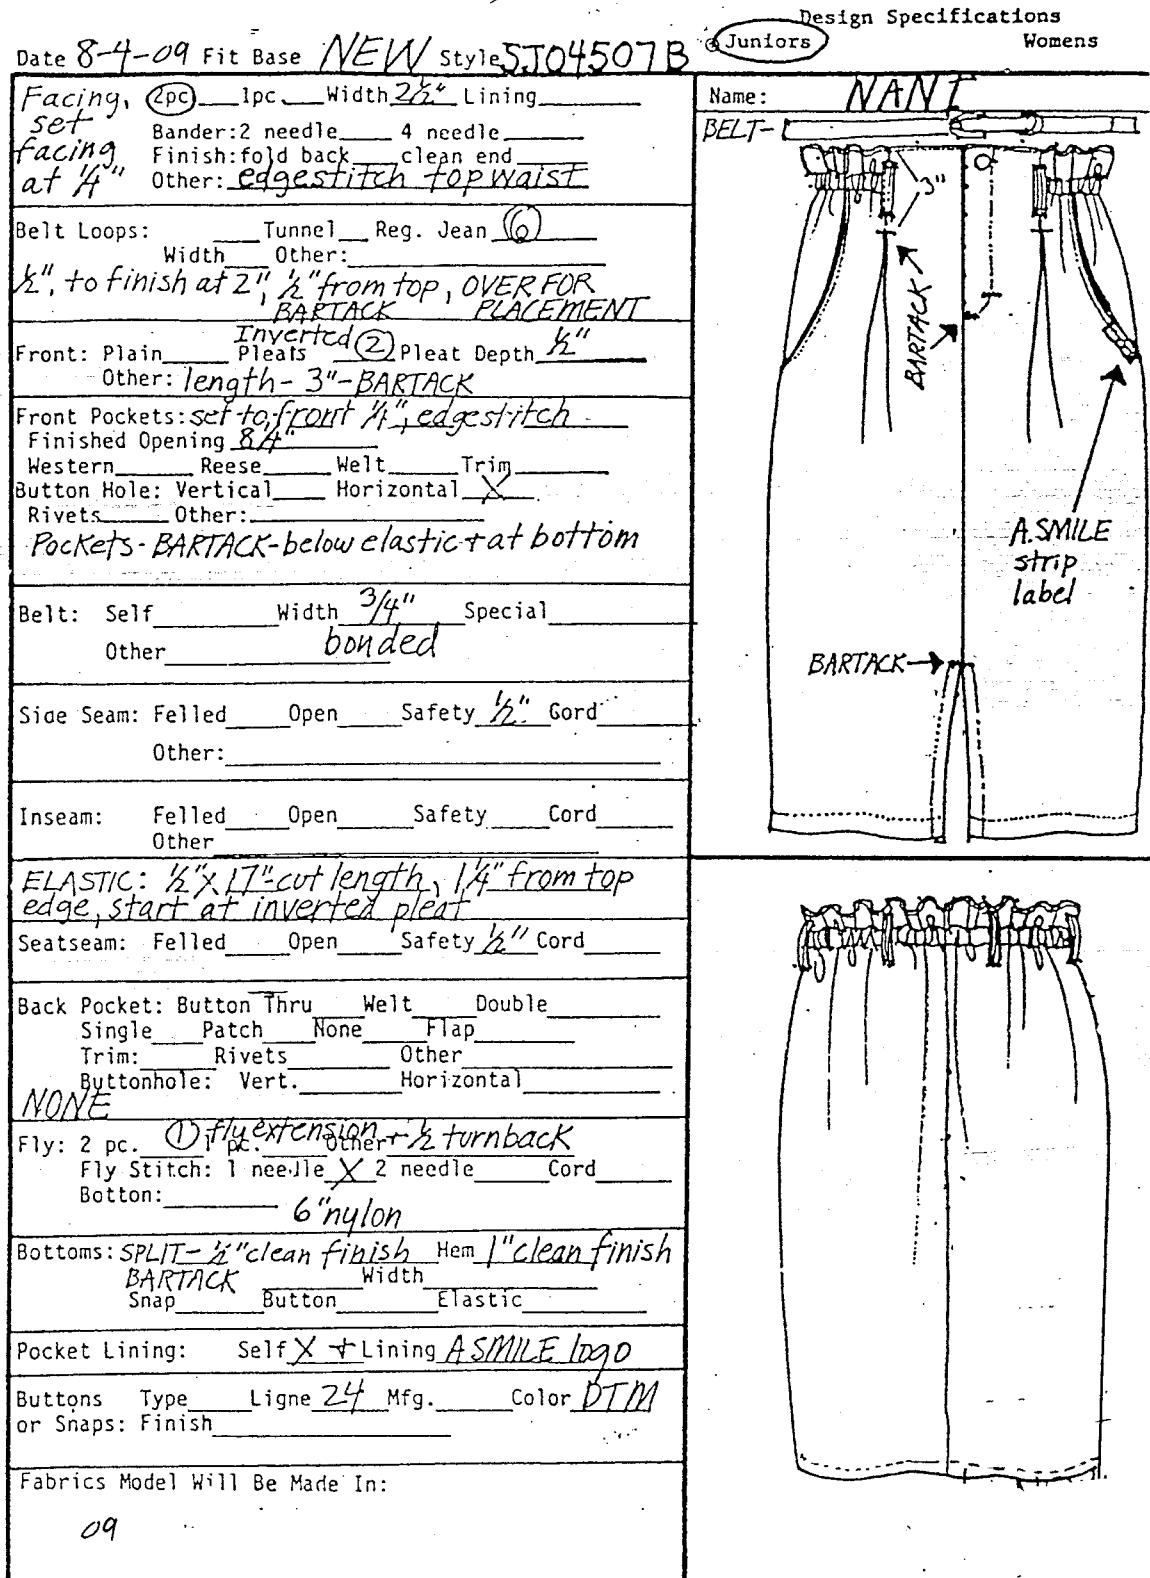 Design Specifications
Juniors Womens
Date 8-4-09 Fit Base NEW Style SJ04507B
Facing, 2pc 1pc. Width 2½" Lining
set
facing
at ¼"
Bander: 2 needle 4 needle
Finish: fold back clean end
Other: edgestitch top waist
Belt Loops: Tunnel Reg. Jean 6
Width Other:
½", to finish at 2", ½" from top, OVER FOR
BARTACK PLACEMENT
Inverted
Front: Plain Pleats 2 Pleat Depth ½"
Other: length - 3" - BARTACK
Front Pockets: set to front ¼", edgestitch
Finished Opening 8¼"
Western Reese Welt Trim
Button Hole: Vertical Horizontal X
Rivets Other:
Pockets - BARTACK - below elastic + at bottom
Belt: Self Width 3/4" Special
Other bonded
Side Seam: Felled Open Safety ½" Cord
Other:
Inseam: Felled Open Safety Cord
Other
ELASTIC: ½" X 17" - cut length, 1¼" from top
edge, start at inverted pleat
Seatseam: Felled Open Safety ½" Cord
Back Pocket: Button Thru Welt Double
Single Patch None Flap
Trim: Rivets Other
Buttonhole: Vert. Horizontal
NONE
Fly: 2 pc. 1 1 pc. fly extension Other + ½ turnback
Fly Stitch: 1 needle X 2 needle Cord
Botton:
6" nylon
Bottoms: SPLIT - ½" clean finish Hem 1" clean finish
BARTACK Width
Snap Button Elastic
Pocket Lining: Self X + Lining A SMILE logo
Buttons Type Ligne 24 Mfg. Color DTM
or Snaps: Finish
Fabrics Model Will Be Made In:
09
Name: NANI
BELT-
3"
BARTACK
BARTACK
A.SMILE
strip
label